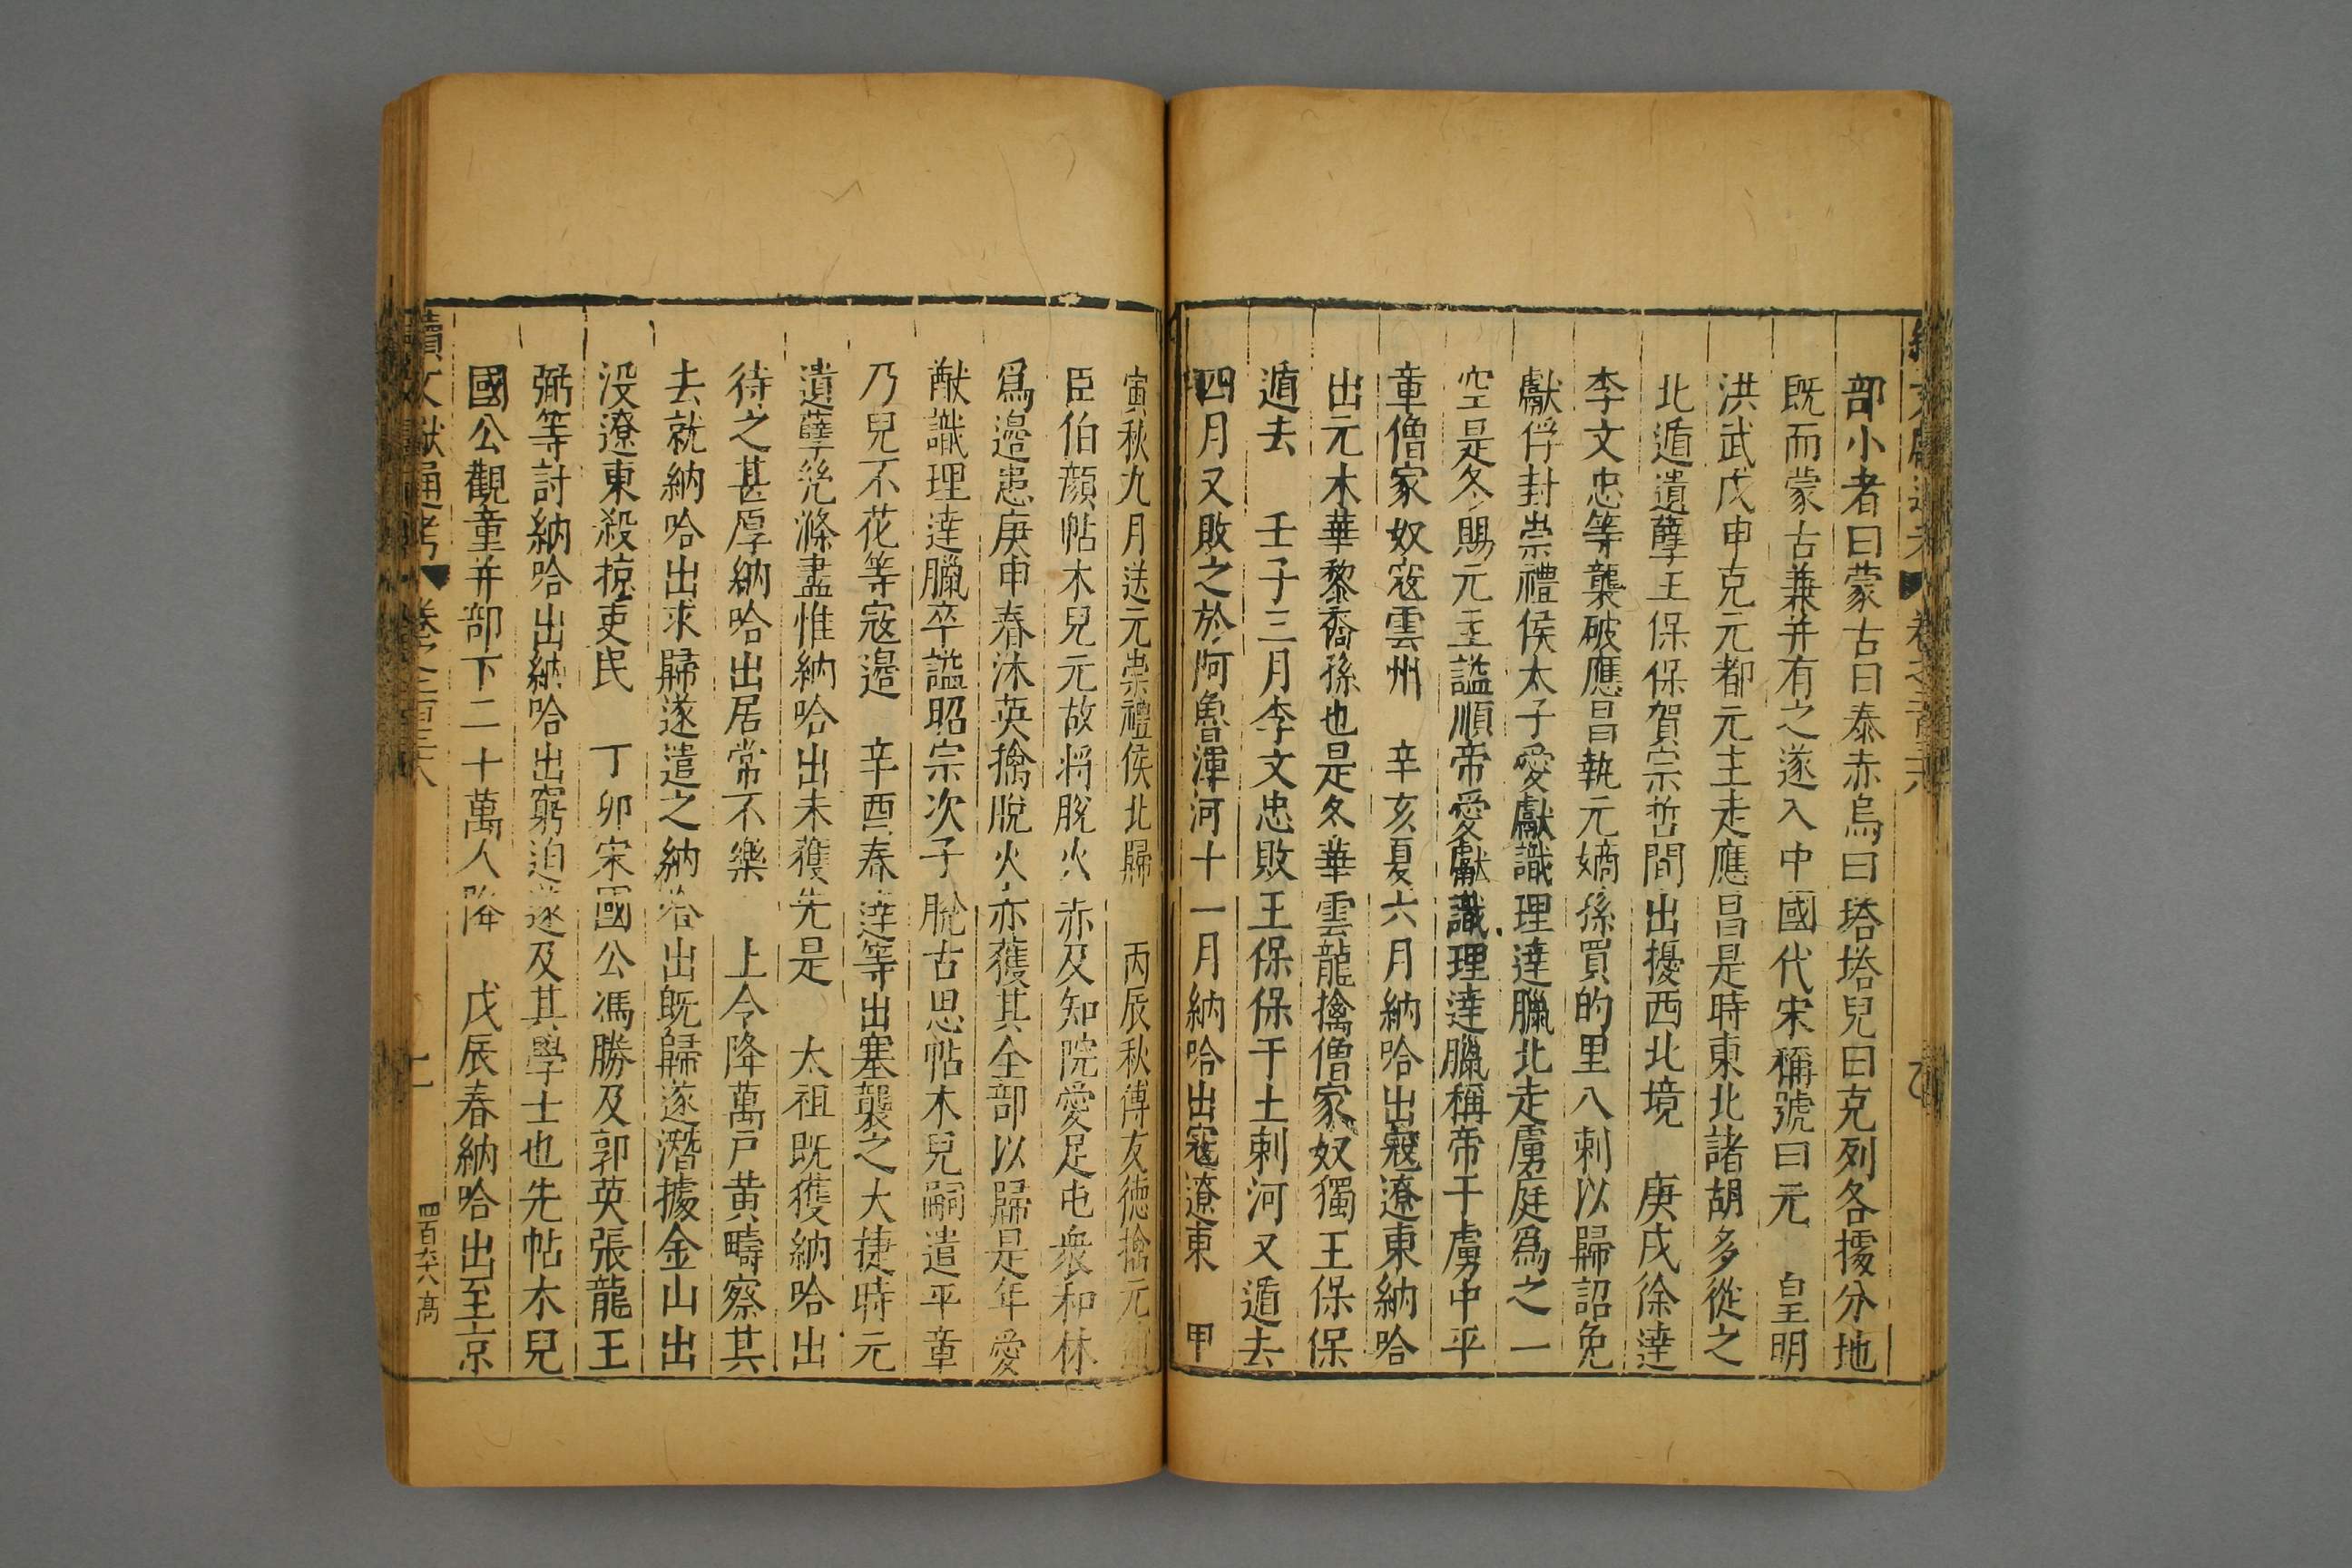 部小者曰蒙古曰泰赤烏曰塔塔兒曰克列各據分地
既而蒙古兼并有之遂入中國代宋稱號曰元　皇明
洪武戊申克元都元主走應昌是時東北諸胡多從之
北遁遺孽王保保賀宗哲間出擾西北境　庚戌徐達
李文忠等襲破應昌執元嫡孫買的里八剌以歸詔免
獻俘封崇禮侯太子愛獻識理達臘北走虜庭爲之一
空是冬賜元主謚順帝愛獻識理達臘稱帝于虜中平
章僧家奴寇雲州　辛亥夏六月納哈出寇遼東納哈
出元木華黎裔孫也是冬華雲龍擒僧家奴獨王保保
遁去　壬子三月李文忠敗王保保于土剌河又遁去
四月又敗之於阿魯渾河十一月納哈出寇遼東　甲
寅秋九月送元崇禮侯北歸　丙辰秋傅友德擒元
臣伯顏帖木兒元故將脫火赤及知院愛足屯衆和林
爲邊患庚申春沐英擒脫火赤獲其全部以歸是年愛
猷識理達臘卒謚昭宗次子脫古思帖木兒嗣遣平章
乃兒不花等寇邊　辛酉春達等出塞襲之大捷時元
遺孽㡬滌盡惟納哈出未獲先是　太祖既獲納哈出
待之甚厚納哈出居常不樂　上令降萬戶黄疇察其
去就納哈出求歸遂遣之納哈出既歸遂潛據金山出
没遼東殺掠吏民　丁卯宋國公馮勝及郭英張龍王
弼等討納哈出納哈出窮迫遂及其學士也先帖木兒
國公觀童并部下二十萬人降　戊辰春納哈出至京
續文獻通考　卷之二百三十八　七
四百六十八　高